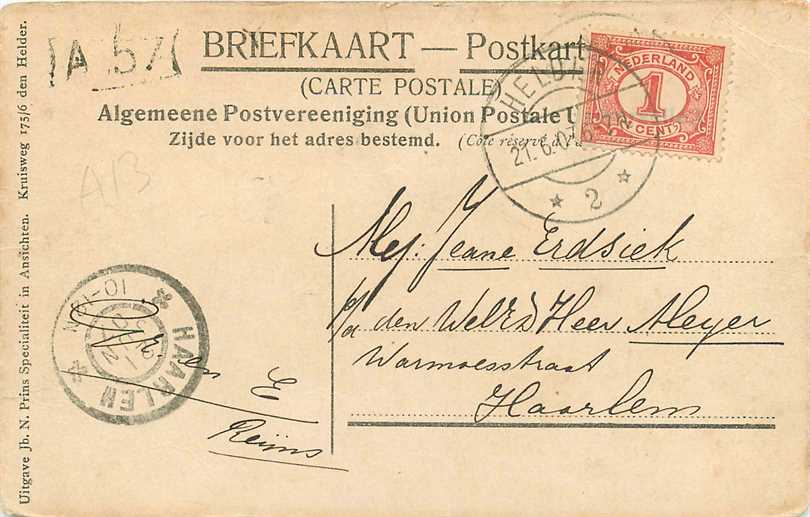 A 57
BRIEFKAART — Postkart
(CARTE POSTALE)
Algemeene Postvereeniging (Union Postale U
Zijde voor het adres bestemd. (Côté réservé à
NEDERLAND
1
CENT
HELD
21.6.07
2
A/3
Mej: Jeane Erdsiek
p/a den WelEd Heer Meyer
Warmoesstraat
Haarlem
HAARLEM
10-12N
en E
Reijns
Uitgave Jb. N. Prins Specialiteit in Ansichten. Kruisweg 175/6 den Helder.